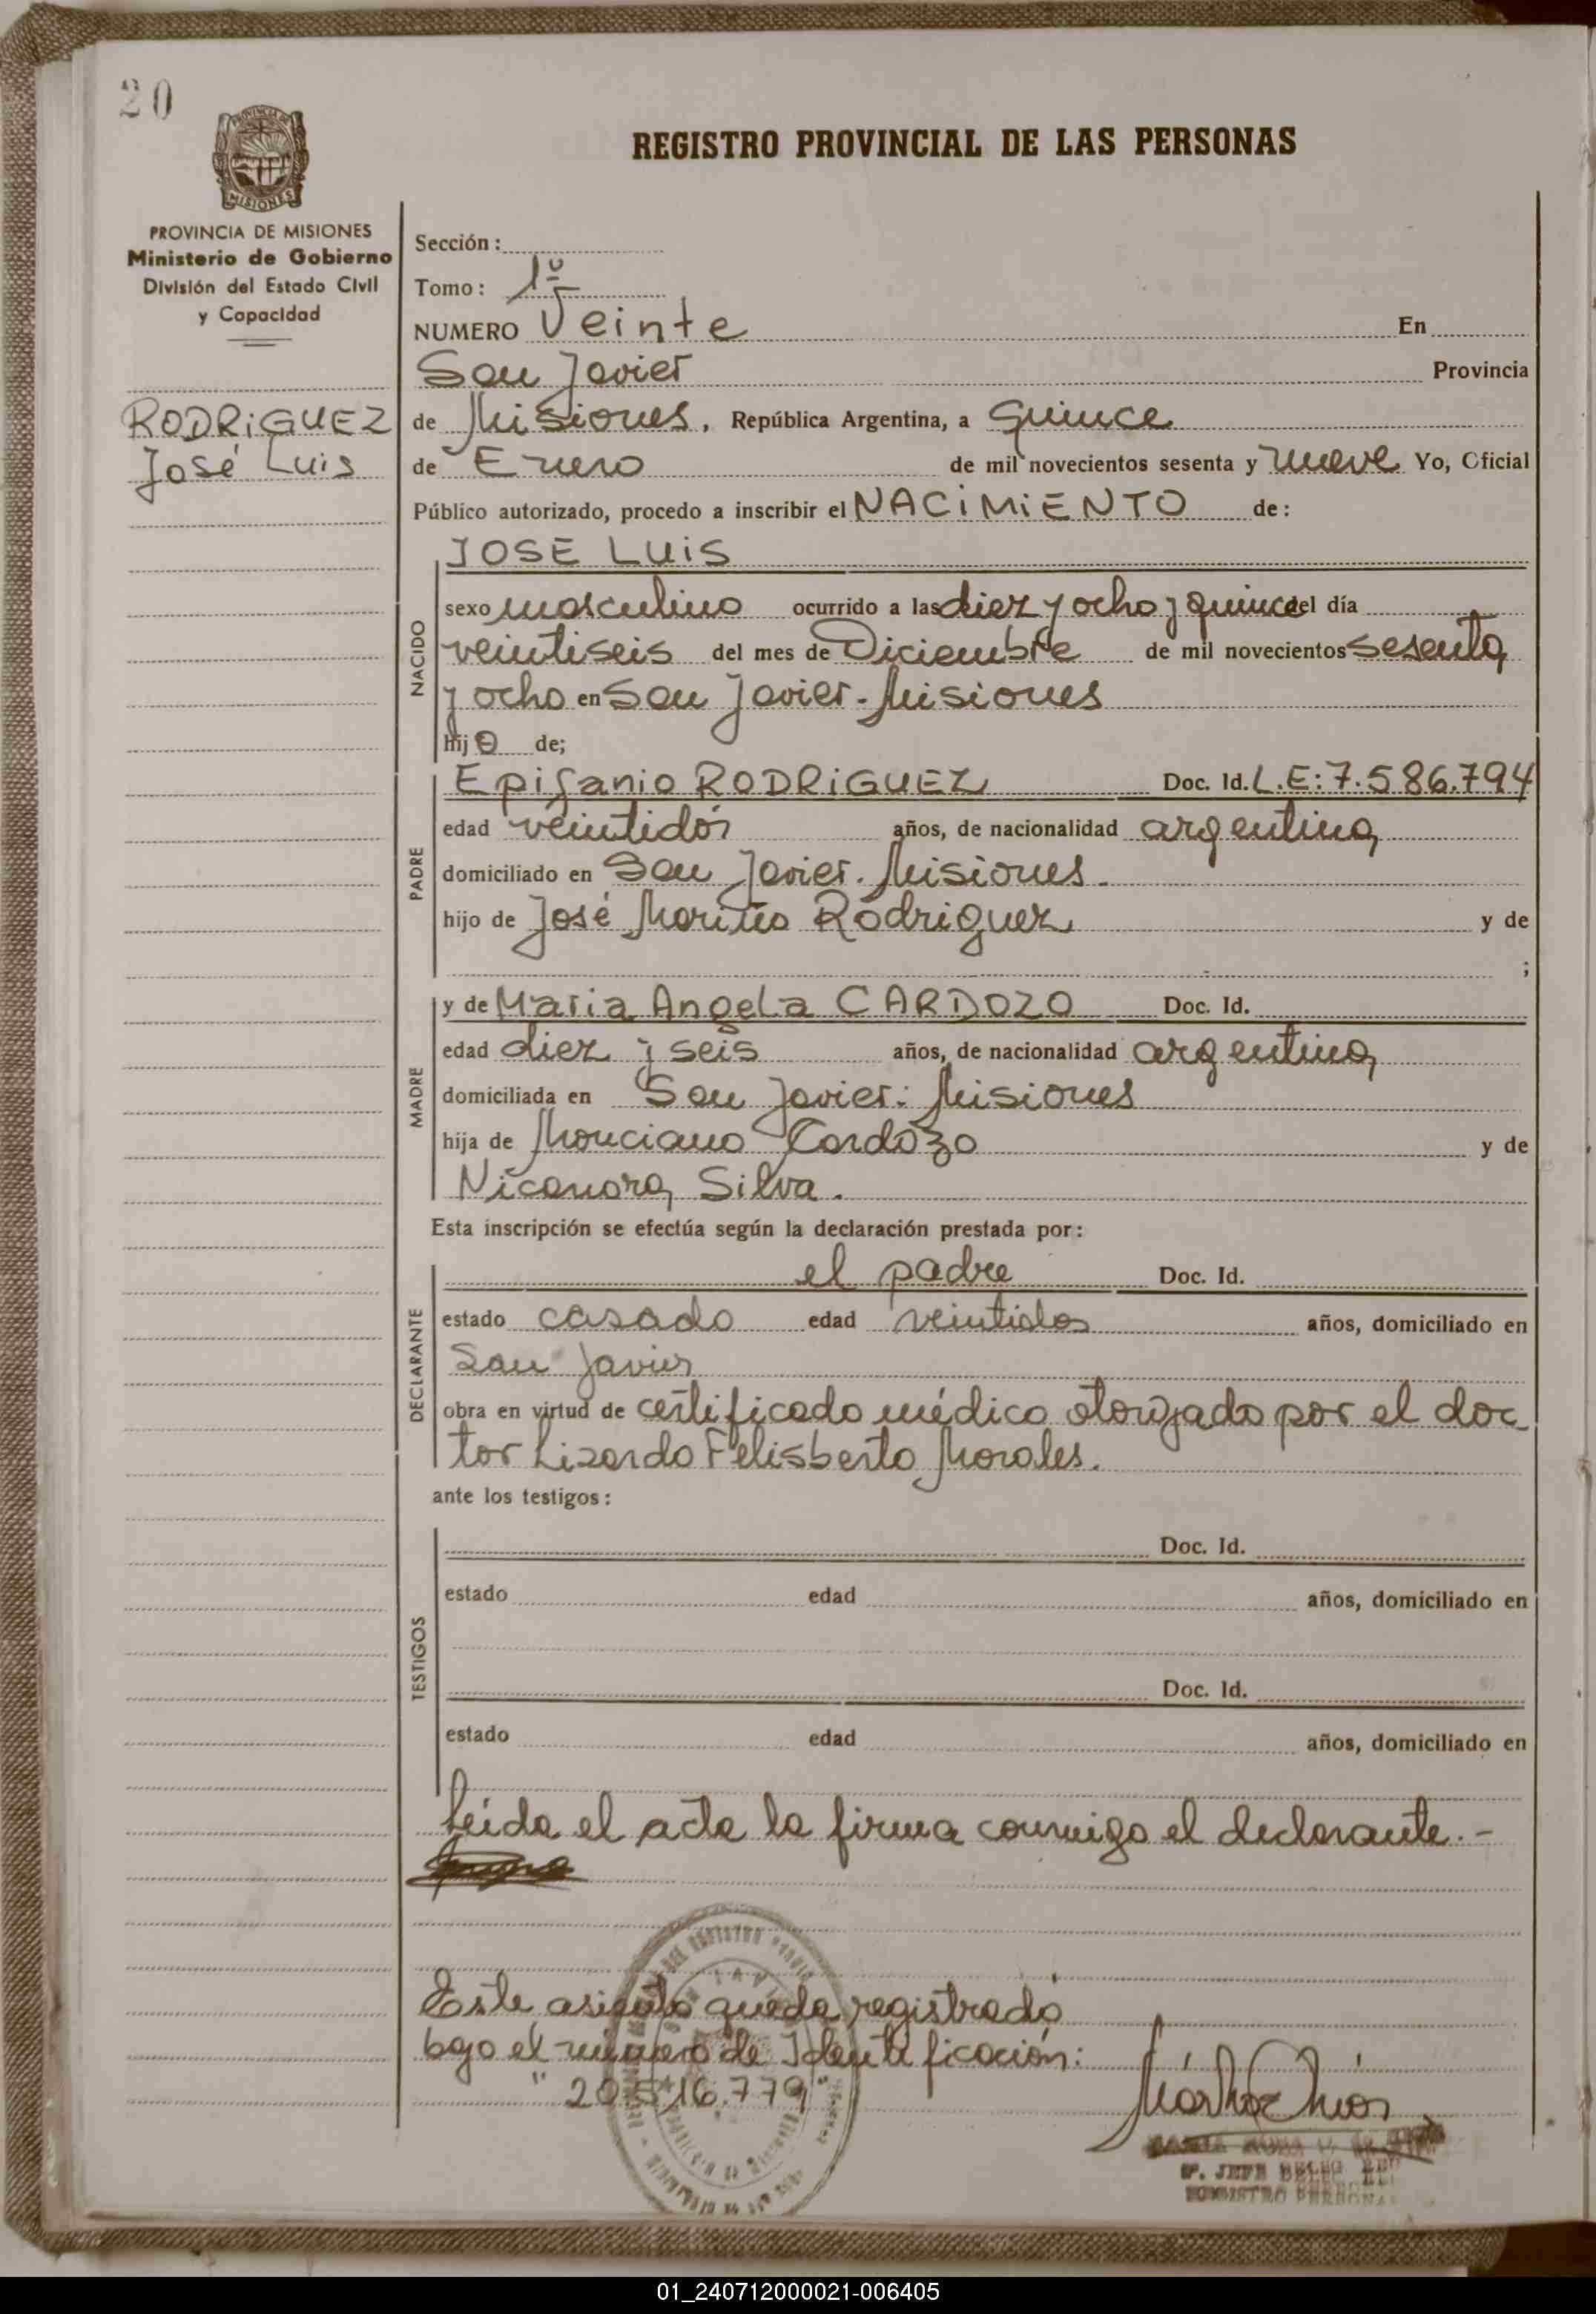 20
MISIONES
PROVINCIA DE MISIONES
Ministerio de Gobierno
División del Estado Civil
y Capacidad
RODRIGUEZ
José Luis
REGISTRO PROVINCIAL DE LAS PERSONAS
Sección:
Tomo: 1º
NUMERO Veinte En
San Javier Provincia
de Misiones, República Argentina, a quince
de Enero de mil novecientos sesenta y nueve Yo, Oficial
Público autorizado, procedo a inscribir el NACIMIENTO de:
NACIDO
JOSE LUIS
sexo masculino ocurrido a las diez y ocho y quince del día
veintiseis del mes de Diciembre de mil novecientos sesenta
y ocho en San Javier - Misiones
hijo de;
PADRE
Epifanio RODRIGUEZ Doc. Id. L.E: 7.586.794
edad veintidós años, de nacionalidad argentina
domiciliado en San Javier. Misiones.
hijo de José Rodriguez y de
;
MADRE
y de Maria Angela CARDOZO Doc. Id.
edad diez y seis años, de nacionalidad argentina
domiciliada en San Javier: Misiones
hija de Cardozo y de
Nicanora Silva.
Esta inscripción se efectúa según la declaración prestada por:
DECLARANTE
el padre Doc. Id.
estado casado edad veintidos años, domiciliado en
San Javier
obra en virtud de certificado médico otorgado por el doc
tor Lizardo Felisberto Morales.
ante los testigos:
TESTIGOS
Doc. Id.
estado edad años, domiciliado en
Doc. Id.
estado edad años, domiciliado en
Leida el acta la firma conmigo el declarante. -
Este asiento queda registrado
bajo el número de Identificación:
" 20.516.779"
01_240712000021-006405